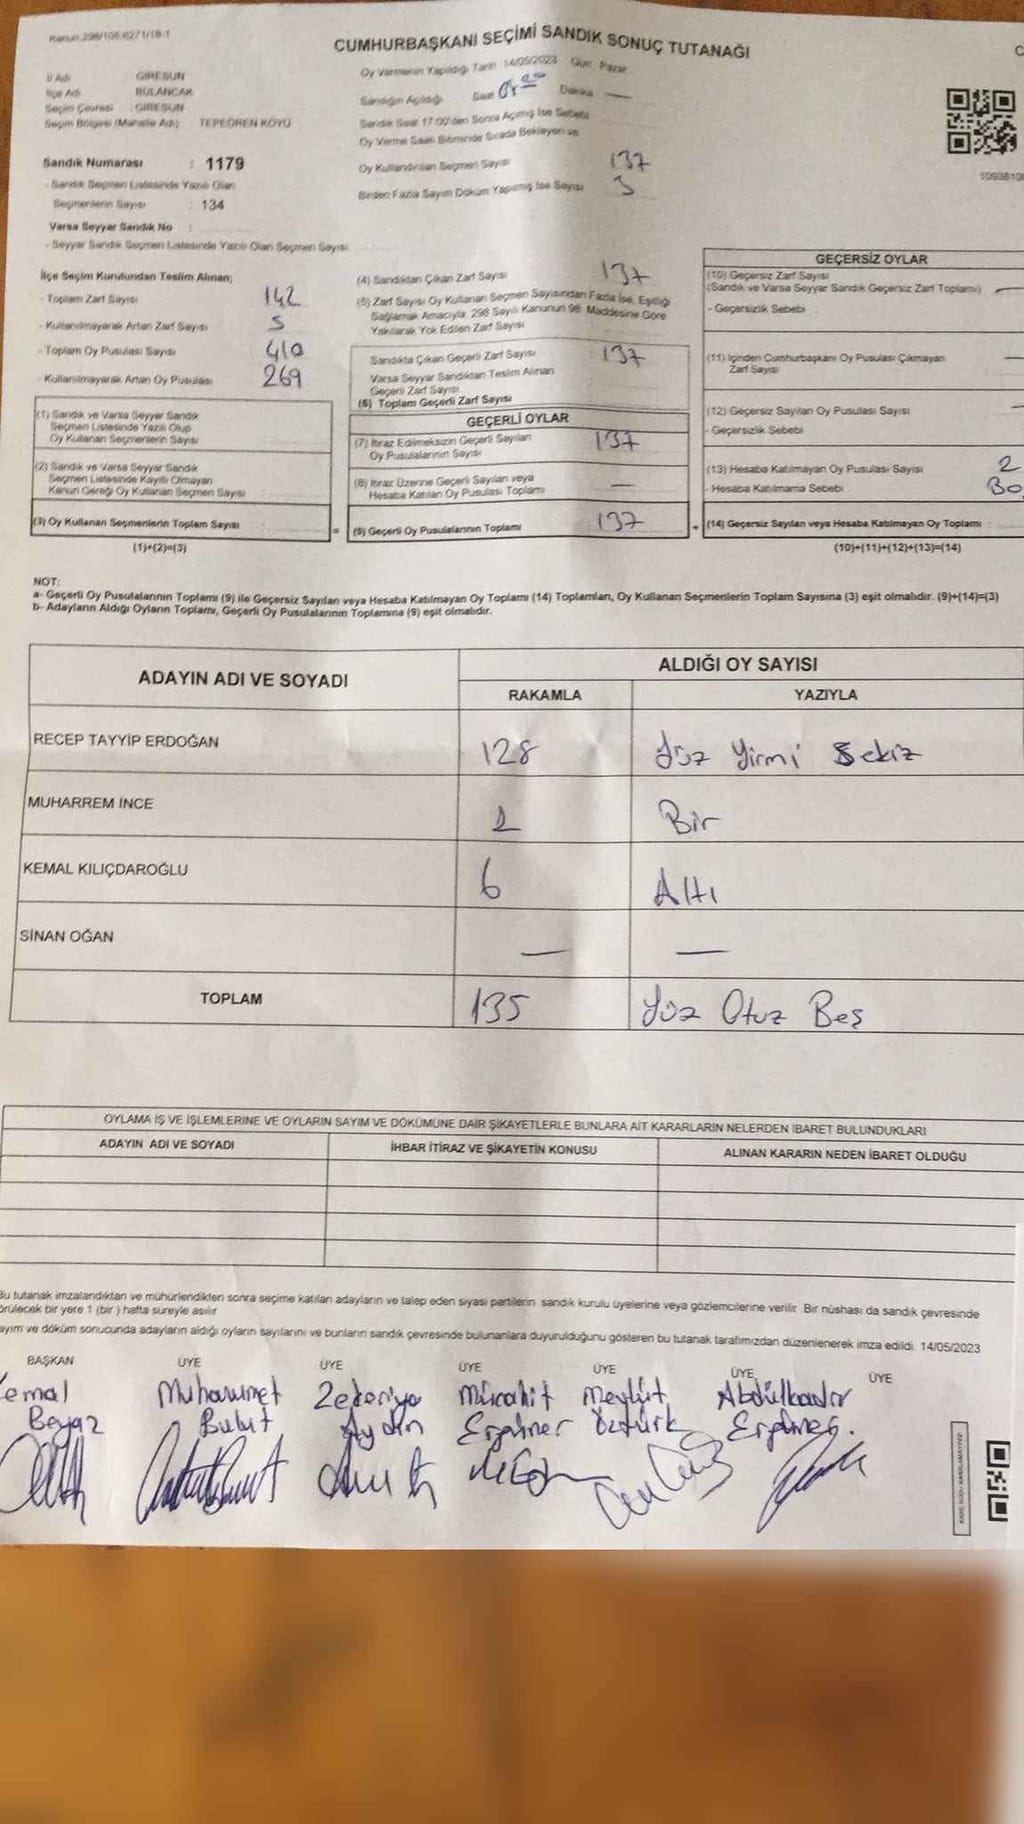 Kanun:298/105,6271/18-1
CUMHURBAŞKANI SEÇİMİ SANDIK SONUÇ TUTANAĞI
İl Adı : GİRESUN
İlçe Adı : BULANCAK
Seçim Çevresi : GİRESUN
Seçim Bölgesi (Mahalle Adı) : TEPEÖREN KÖYÜ
Sandık Numarası : 1179
- Sandık Seçmen Listesinde Yazılı Olan
Seçmenlerin Sayısı : 134
Varsa Seyyar Sandık No :
- Seyyar Sandık Seçmen Listesinde Yazılı Olan Seçmen Sayısı
Oy Vermenin Yapıldığı Tarih 14/05/2023 Gün Pazar
Sandığın Açıldığı Saat Dakika —
Sandık Saat 17:00'den Sonra Açılmış İse Sebebi
Oy Verme Saati Bitiminde Sırada Bekleyen ve
Oy Kullandırılan Seçmen Sayısı 137
Birden Fazla Sayım Döküm Yapılmış İse Sayısı 3
İlçe Seçim Kurulundan Teslim Alınan;
- Toplam Zarf Sayısı 142
- Kullanılmayarak Artan Zarf Sayısı 5
- Toplam Oy Pusulası Sayısı 410
- Kullanılmayarak Artan Oy Pusulası 269
(1) Sandık ve Varsa Seyyar Sandık
Seçmen Listesinde Yazılı Olup
Oy Kullanan Seçmenlerin Sayısı
(2) Sandık ve Varsa Seyyar Sandık
Seçmen Listesinde Kayıtlı Olmayan
Kanun Gereği Oy Kullanan Seçmen Sayısı
(3) Oy Kullanan Seçmenlerin Toplam Sayısı =
(1)+(2)=(3)
(4) Sandıktan Çıkan Zarf Sayısı 137
(5) Zarf Sayısı Oy Kullanan Seçmen Sayısından Fazla İse, Eşitliği
Sağlamak Amacıyla, 298 Sayılı Kanunun 98. Maddesine Göre
Yakılarak Yok Edilen Zarf Sayısı
Sandıkta Çıkan Geçerli Zarf Sayısı 137
Varsa Seyyar Sandıktan Teslim Alınan
Geçerli Zarf Sayısı
(6) Toplam Geçerli Zarf Sayısı
GEÇERLİ OYLAR
(7) İtiraz Edilmeksizin Geçerli Sayılan
Oy Pusulalarının Sayısı 137
(8) İtiraz Üzerine Geçerli Sayılan veya
Hesaba Katılan Oy Pusulası Toplamı —
(9) Geçerli Oy Pusulalarının Toplamı 137 +
GEÇERSİZ OYLAR
(10) Geçersiz Zarf Sayısı
(Sandık ve Varsa Seyyar Sandık Geçersiz Zarf Toplamı) —
- Geçersizlik Sebebi
(11) İçinden Cumhurbaşkanı Oy Pusulası Çıkmayan
Zarf Sayısı —
(12) Geçersiz Sayılan Oy Pusulası Sayısı —
- Geçersizlik Sebebi
(13) Hesaba Katılmayan Oy Pusulası Sayısı 2
- Hesaba Katılmama Sebebi Bo
(14) Geçersiz Sayılan veya Hesaba Katılmayan Oy Toplamı
(10)+(11)+(12)+(13)=(14)
NOT:
a- Geçerli Oy Pusulalarının Toplamı (9) ile Geçersiz Sayılan veya Hesaba Katılmayan Oy Toplamı (14) Toplamları, Oy Kullanan Seçmenlerin Toplam Sayısına (3) eşit olmalıdır. (9)+(14)=(3)
b- Adayların Aldığı Oyların Toplamı, Geçerli Oy Pusulalarının Toplamına (9) eşit olmalıdır.
ADAYIN ADI VE SOYADI
ALDIĞI OY SAYISI
RAKAMLA YAZIYLA
RECEP TAYYİP ERDOĞAN 128 Yüz Yirmi Sekiz
MUHARREM İNCE 1 Bir
KEMAL KILIÇDAROĞLU 6 Altı
SİNAN OĞAN — —
TOPLAM 135 Yüz Otuz Beş
OYLAMA İŞ VE İŞLEMLERİNE VE OYLARIN SAYIM VE DÖKÜMÜNE DAİR ŞİKAYETLERLE BUNLARA AİT KARARLARIN NELERDEN İBARET BULUNDUKLARI
ADAYIN ADI VE SOYADI İHBAR İTİRAZ VE ŞİKAYETİN KONUSU ALINAN KARARIN NEDEN İBARET OLDUĞU
Bu tutanak imzalandıktan ve mühürlendikten sonra seçime katılan adayların ve talep eden siyasi partilerin sandık kurulu üyelerine veya gözlemcilerine verilir. Bir nüshası da sandık çevresinde
örülecek bir yere 1 (bir ) hafta süreyle asılır.
ayım ve döküm sonucunda adayların aldığı oyların sayılarını ve bunların sandık çevresinde bulunanlara duyurulduğunu gösteren bu tutanak tarafımızdan düzenlenerek imza edildi. 14/05/2023
BAŞKAN ÜYE ÜYE ÜYE ÜYE ÜYE ÜYE
emal Muhammet Zekeriya Mücahit Mevlüt Abdülkadir
Beyaz Bulut Aydın Ergüner Öztürk Ergüner.